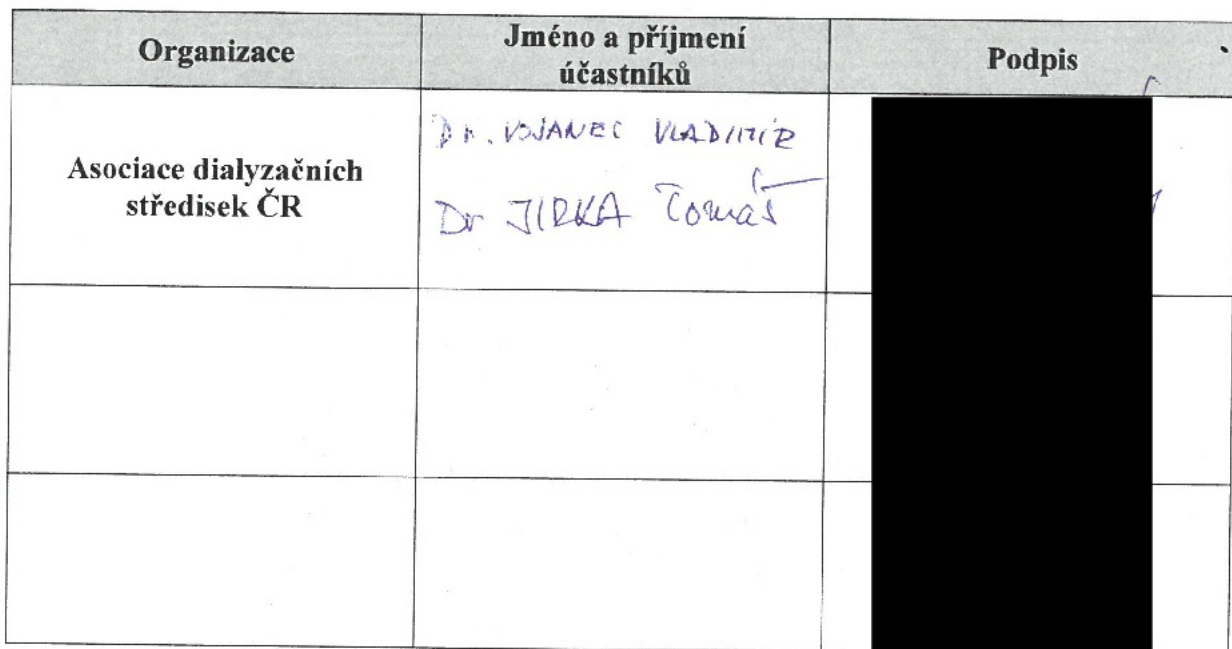 Organizace
Jméno a příjmení
účastníků
Podpis
Asociace dialyzačních
středisek ČR
Dr. VOJANEC VLADIMÍR
Dr JIRKA Tomáš